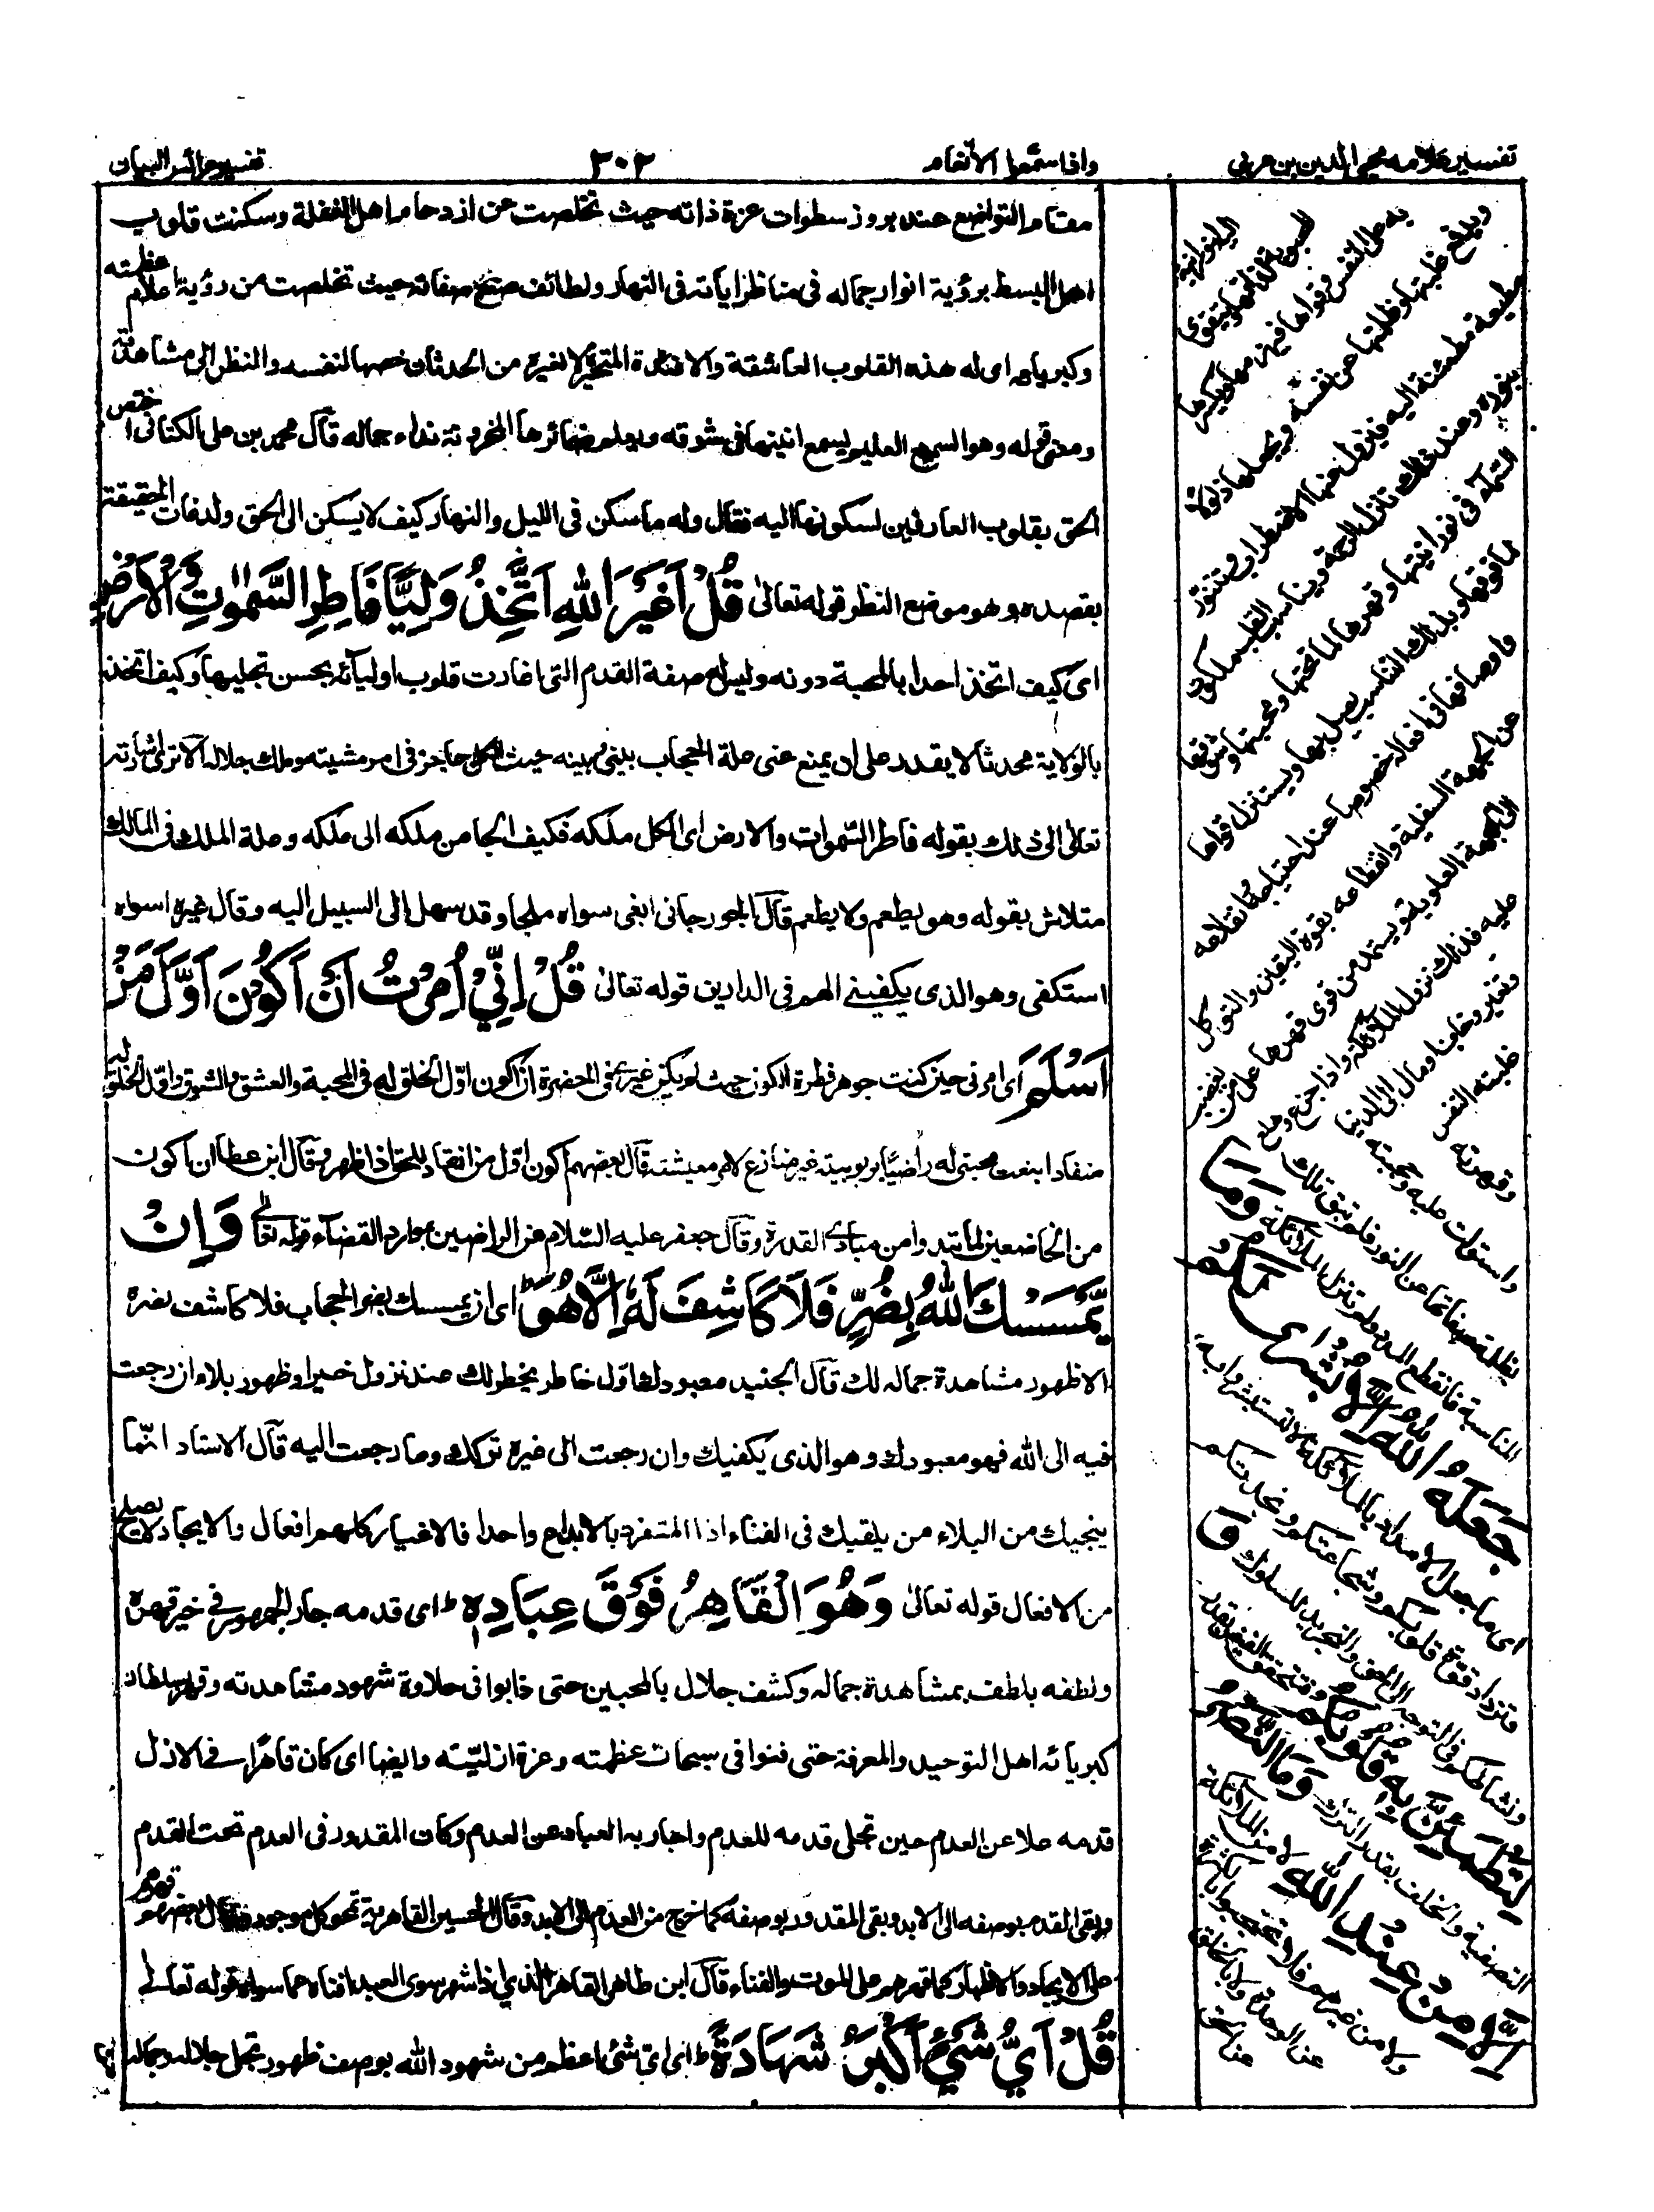 تفسير علامه محيى الدين بن عربي
واذا سمعوا الانعام
٢٠٢
تفسير عرائس البيان
مقام التواضع عند بروز سطوات عزة ذاته حيث تخلصت عن ازدحام اهل الغفلة وسكنت قلوب
اهل البسط برؤية انوار جماله فى مناظر اياته فى النهار ولطائف صنع صفاته حيث تخلصت من رؤية اعلام عظمته
وكبريائه اى له هذه القلوب العاشقة والافئدة المتحيرة لا لغيره من الحدثان خصها لنفسه والنظر الى مشاهدته
ومعنى قوله وهو السميع العليم يسمع انينها فى شوقه ويعلم ضمائرها المخزونة نداء جماله قال محمد بن على الكتانى اختص
الحق بقلوب العارفين لسكونها اليه فقال وله ما سكن فى الليل والنهار كيف لا يسكن الى الحق ولدفات الحقيقة
بقصده وهو موضع النظر قوله تعالىٰ قُلْ اَغَيْرَ اللهِ اَتَّخِذُ وَلِيًّا فَاطِرِ السَّمٰوٰتِ وَالْاَرْضِ
اى كيف اتخذ احدا بالمحبة دونه وليس له صفة القدم التى اغارت قلوب اوليائه بحسن تجليها وكيف اتخذ
بالولاية محدثا لا يقدر على ان يمنع عنى علة الحجاب بينى وبينه حيث الكل عاجز فى امر مشيته وملك جلاله الا ترى اشارته
تعالىٰ الى ذلك بقوله فاطر السموات والارض اى الكل ملكه فكيف الجا من ملكه الى ملكه وعلة الملك فى المالك
متلاش بقوله وهو يطعم ولا يطعم قال الجورجانى ابغى سواه ملجا وقد سهل الى السبيل اليه وقال غيره اسواه
استكفى وهو الذى يكفينى الهم فى الدارين قوله تعالىٰ قُلْ اِنِّيْ اُمِرْتُ اَنْ اَكُوْنَ اَوَّلَ مَنْ
اَسْلَمَ اى امرنى حين كنت جوهر فطرة الكون حيث لم يكن غيرى فى الحضرة ان اكون اول الخلق له فى المحبة والعشق والشوق واول الخلق له
منقادا بنعت محبتى له راضيا بربوبيته غير منازع لامر مشيته قال بعضهم اكون اول من انقاد للحق اذا ظهر وقال ابن عطا ان اكون
من الخاضعين لما تبدوا من مبادى القدرة وقال جعفر عليه السلام من الراضين بموارد القضاء قوله تعالىٰ وَاِنْ
يَّمْسَسْكَ اللهُ بِضُرٍّ فَلَا كَاشِفَ لَهٗ اِلَّا هُوَ اى ان يمسسك بضر الحجاب فلا كاشف لضره
الا ظهور مشاهدة جماله لك قال الجنيد معبودك اول خاطر يخطر لك عند نزول ضر او ظهور بلاء ان رجعت
فيه الى الله فهو معبودك وهو الذى يكفيك وان رجعت الى غيره تركك وما رجعت اليه قال الاستاد انما
ينجيك من البلاء من يلقيك فى الفناء اذا المتفرد بالابداع واحد فالاغيار كلهم افعال والايجاد لا يصلح
من الافعال قوله تعالىٰ وَهُوَ الْقَاهِرُ فَوْقَ عِبَادِهٖ اى قدمه جار الجمهور فى خير قهره
ولطفه بلطف بمشاهدة جماله وكشف جلال بالمحبين حتى غابوا فى حلاوة شهود مشاهدته وقهر سلطان
كبريائه اهل التوحيد والمعرفة حتى فنوا فى سبحات عظمته وعزة ازليته وايضا اى كان قاهرا فى الازل
قدمه علا عن العدم حين تجلى قدمه للعدم واجار به العباد عن العدم وكان المقدور فى العدم تحت القدم
وبقى القدم بوصفه الى الابد وبقى المقدور بوصفه كما خرج من العدم الى الابد وقال الحسين القاهرية تمحو كل موجود وقال بعضهم قهرهم
على الايجاد والاظهار كما قهرهم على الموت والفناء قال ابن طاهر القاهر الذى اذا شهر سوى العبد افناه عما سواه قوله تعالىٰ
قُلْ اَيُّ شَيْءٍ اَكْبَرُ شَهَادَةً اى اى شئ اعظم من شهود الله بوصف ظهور تجلى جلاله وجماله
ويدفع غلبتها وظلمتها عن نفسه ويجعلها ذلولا
مطيعة مطمئنة اليه فيزول عنها الاضطراب وتتنور
بنوره وعند ذلك تنزل الرحمة ويناسب القلب ملكوت
السماء فى نورانيتها وقهرها لما تحتها ومحبتها وشوقها
لما فوقها وبذلك التناسب يصل بها ويستنزل قواها
واوصافها فى افعاله خصوصا عند احتياجه وانقلاعه
عن الجهة السفلية وانقطاعه بقوة اليقين والتوكل
الى الجهة العلوية ويستمد من قوى قهرها على من يغضب
عليه فذلك نزول الملائكة واذا جزع وهلع
وتغير وخاف او مال الى الدنيا
غلبته النفس وقهرته
واستولت عليه وحجبته
بظلمة صفاتها عن النور فلم تبق تلك
المناسبة فانقطع المدد ولم تنزل الملائكة وَمَا
جَعَلَهُ اللهُ اِلَّا بُشْرٰى لَكُمْ
اى ما جعل الامداد بالملائكة الا لتستبشروا به
فتزداد قوة قلوبكم وشجاعتكم ونجدتكم
ونشاطكم فى التوجه الى الحق والتجريد للسلوك وَ
لِتَطْمَئِنَّ بِهٖ قُلُوْبُكُمْ
التصفية والخلف بقدر الترك وَمَا النَّصْرُ
اِلَّا مِنْ عِنْدِ اللهِ لا من الملائكة
ولا من غيرهم فلا تحتجبوا بالكثرة
عن الوحدة ولا بالخلق
عن الحق